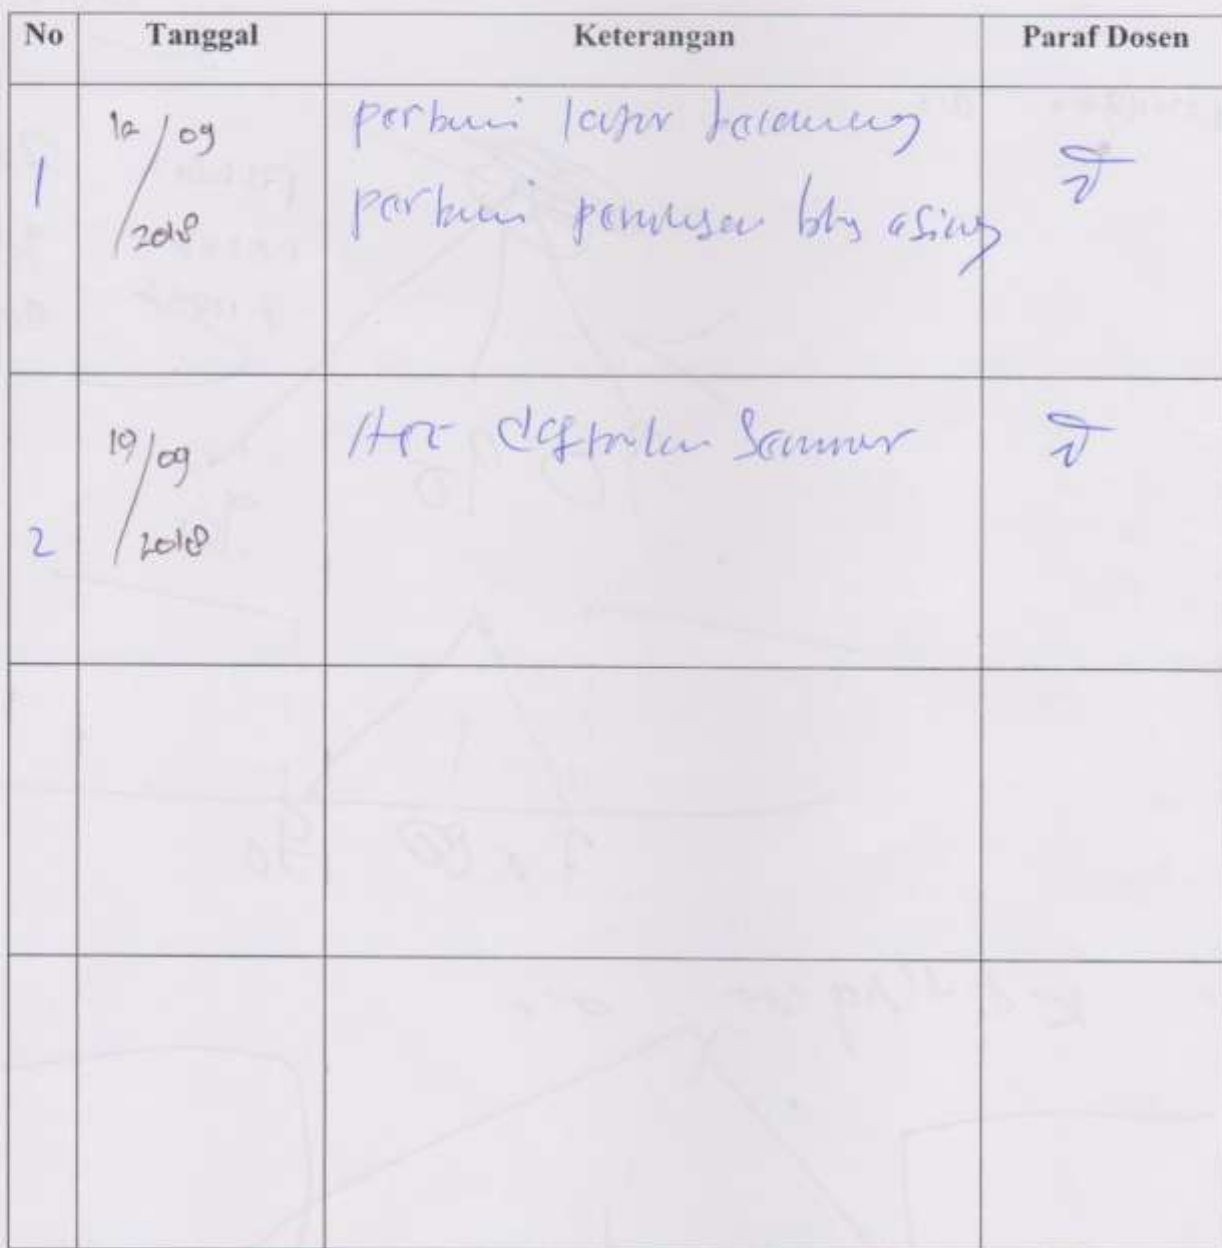 No Tanggal Keterangan Paraf Dosen
1 12/09/2018 perbaiki latar belakang
perbaiki penulisan bhs asing
2 19/09/2018 Acc daftarkan Seminar